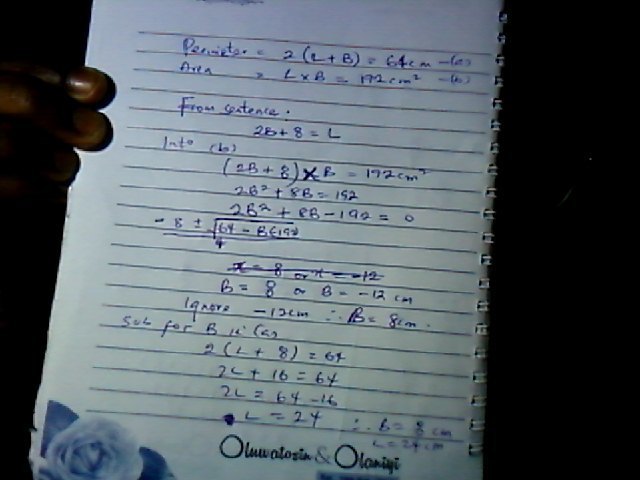 Perimeter = 2(L+B) = 64cm -(a)
Area = L×B = 192cm² -(b)
From sentence.
2B+8 = L
Into (b)
(2B+8)×B = 192cm²
2B²+8B=192
2B²+8B-192=0
-8±√64-8(-192)
4
x=8 or x=-12
B= 8 or B=-12 cm
Ignore -12cm ∴ B= 8cm.
Sub for B in (a)
2(L+8)=64
2L+16=64
2L=64-16
L=24 ∴ B= 8 cm
L=24cm
Oluwatosin & Olaniyi